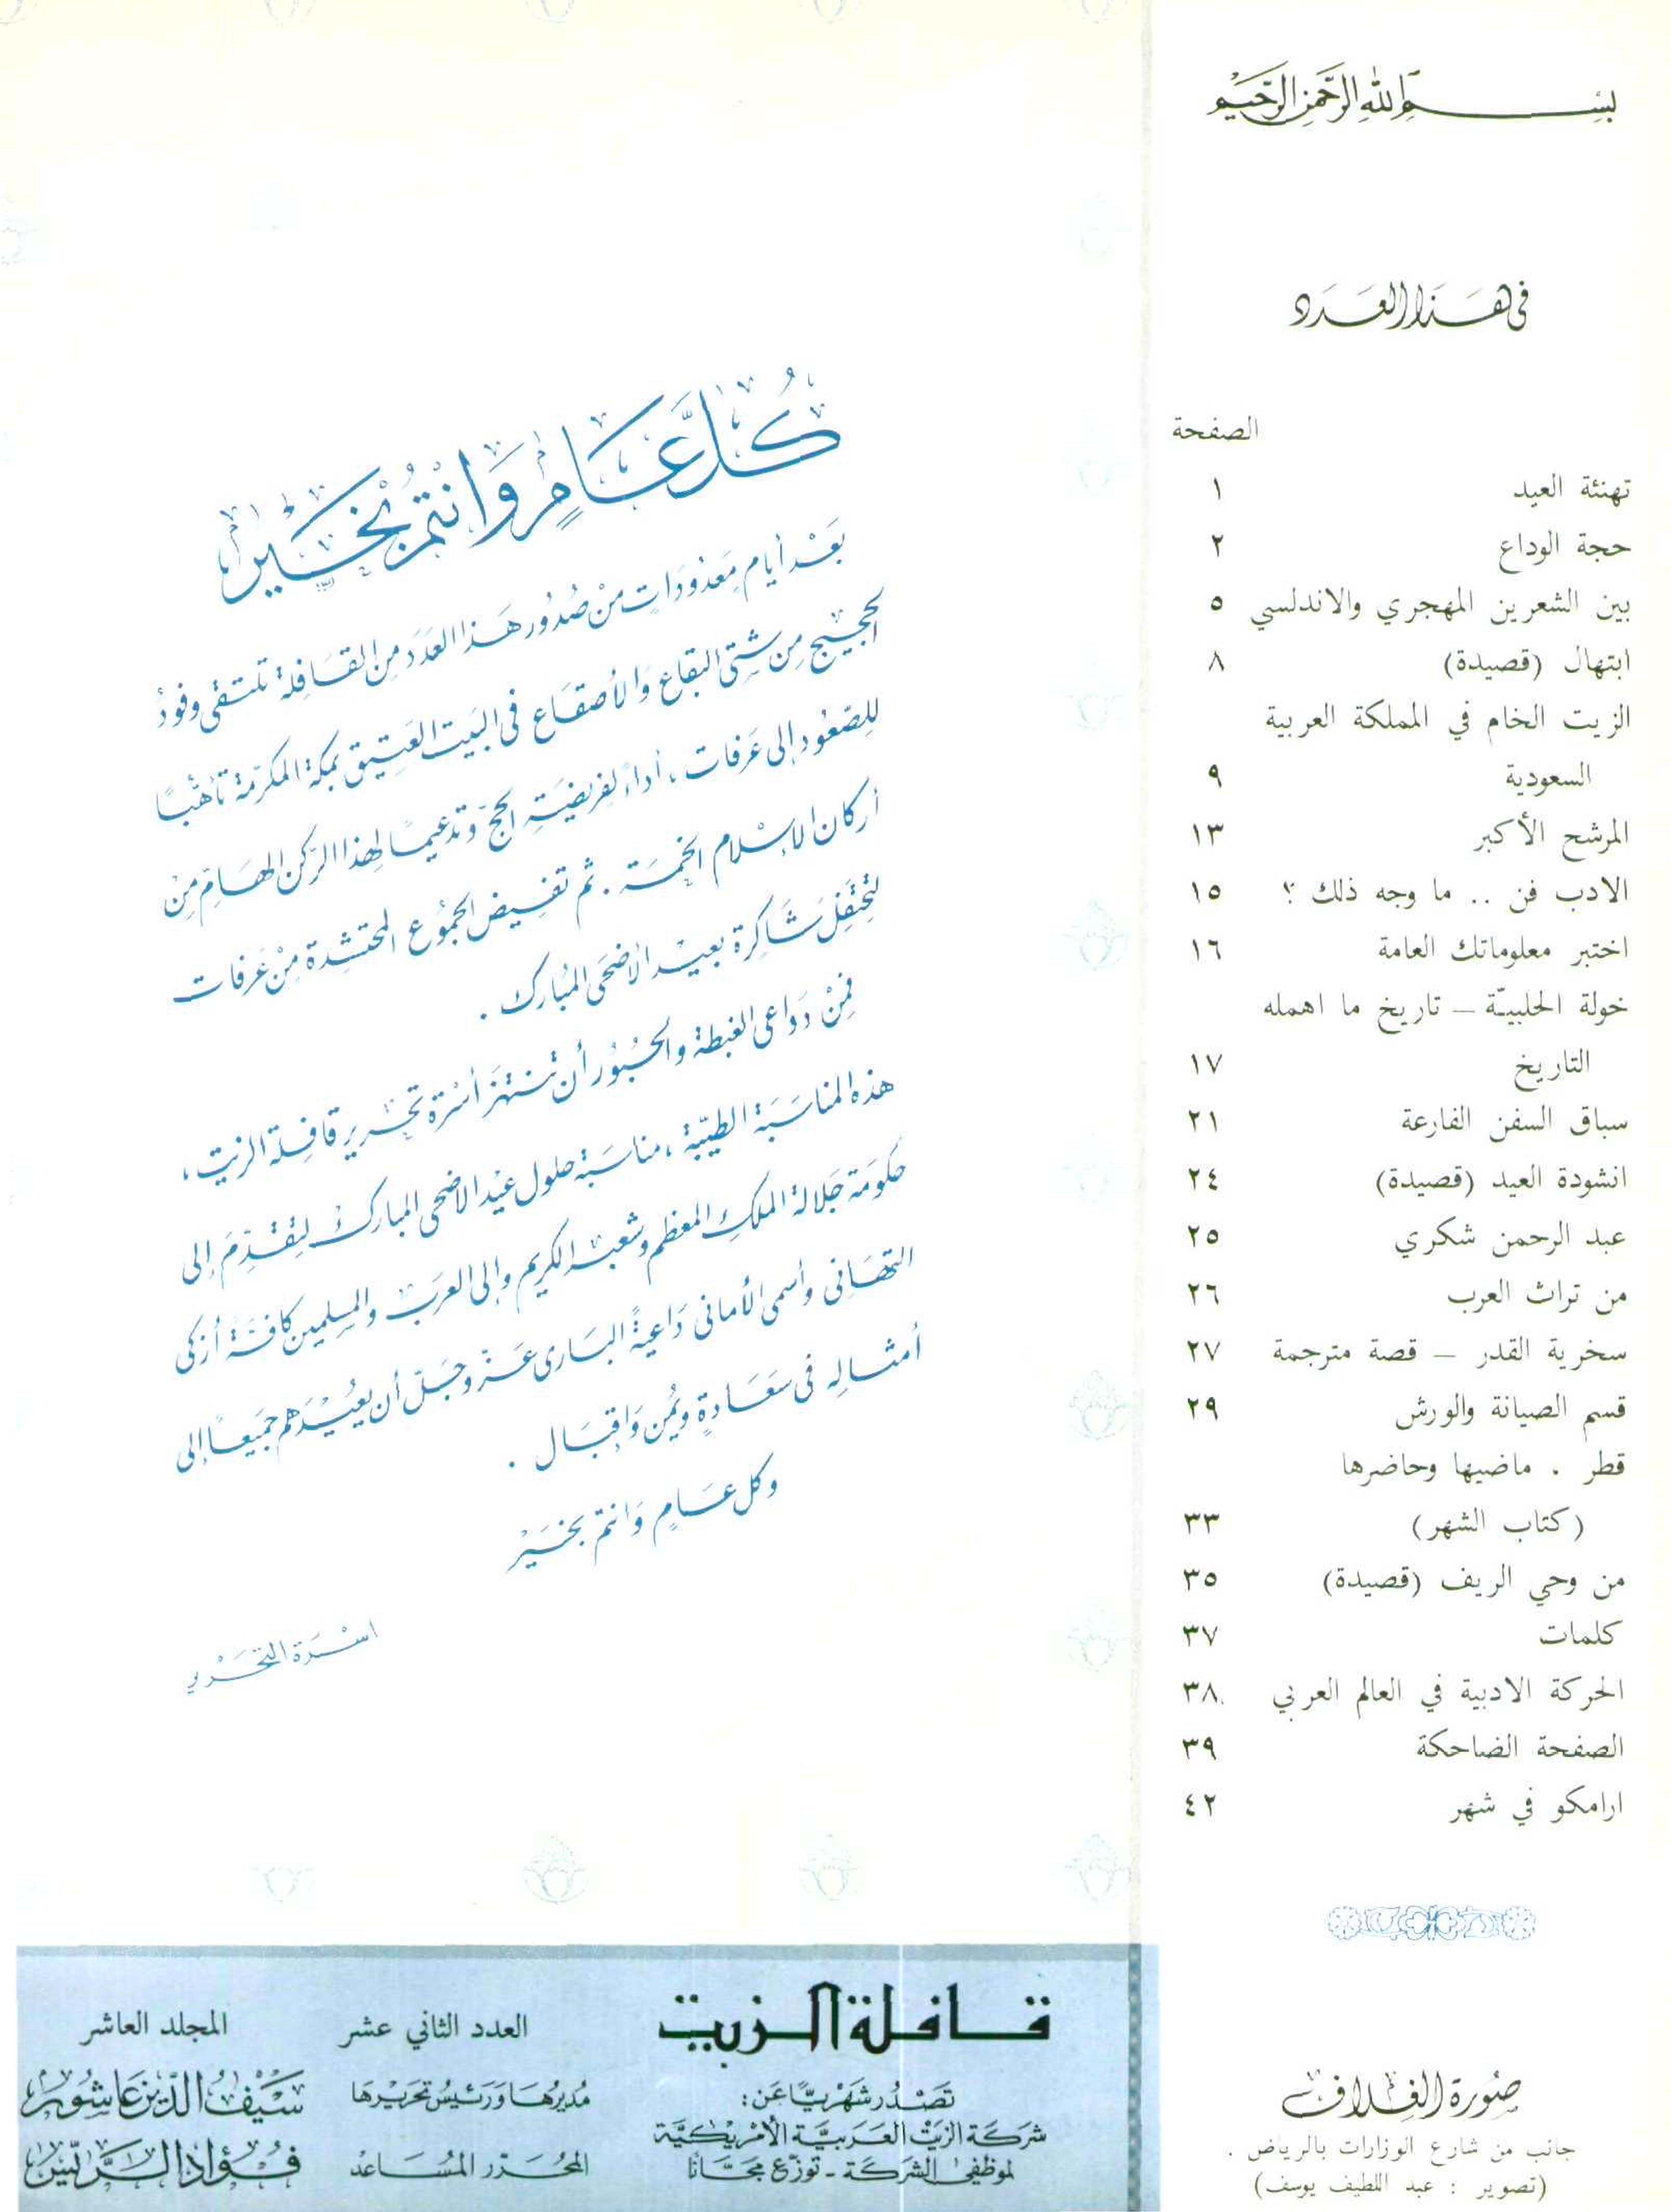 بسم الله الرحمن الرحيم
في هذا العدد
الصفحة
تهنئة العيد ١
حجة الوداع ٢
بين الشعرين المهجري والاندلسي ٥
ابتهال (قصيدة) ٨
الزيت الخام في المملكة العربية
السعودية ٩
المرشح الأكبر ١٣
الادب فن .. ما وجه ذلك ؟ ١٥
اختبر معلوماتك العامة ١٦
خولة الحلبيّة – تاريخ ما اهمله
التاريخ ١٧
سباق السفن الفارعة ٢١
انشودة العيد (قصيدة) ٢٤
عبد الرحمن شكري ٢٥
من تراث العرب ٢٦
سخرية القدر – قصة مترجمة ٢٧
قسم الصيانة والورش ٢٩
قطر . ماضيها وحاضرها
(كتاب الشهر) ٣٣
من وحي الريف (قصيدة) ٣٥
كلمات ٣٧
الحركة الادبية في العالم العربي ٣٨
الصفحة الضاحكة ٣٩
ارامكو في شهر ٤٢
صورة الغلاف
جانب من شارع الوزارات بالرياض .
(تصوير : عبد اللطيف يوسف)
كُلُّ عَامٍ وَانتُمْ بِخَيْر
بَعْد أيام مَعدُودَاتٍ مِنْ صُدُور هَذا العَدَد مِن القَافِلة تلتقى وفودُ
الحجيج مِن شتى البقاع وَالأصقاع فى البَيت العَتِيق بمكة المكرّمة تأهّبًا
للصّعُود إلى عَرفات ، أداءً لفريضَةِ الحجّ وَتدعيمًا لهذا الرّكن الهَامّ مِنْ
أركان الإسْلام الخمسَة . ثم تفيض الجمُوع المحتشدة مِنْ عَرفات
لتحْتَفِلَ شاكِرة بعيد الأضحَى المُبارك .
فمِنْ دَوَاعى الغبطة والحُبُور أن تنتهزَ أسْرة تحرير قافِلة الزيت ،
هذه المناسَبَة الطيّبة ، مناسَبة حلول عيْد الاضحى المبارك لتقدِّمَ إلى
حكومَة جَلالة الملك المعظم وشعبه الكريم وإلى العرَب والمسلمين كافَّة أزكى
التهَانى وأسمى الأمانى دَاعيةً البَارى عَزّ وجَلّ أن يعيْدَهم جَميعًا إلى
أمثالِهِ فى سَعَادةٍ ويُمن وَإقبَال .
وكل عَامٍ وَانتمْ بخَيْر
اسْرَة التحَرير
قافلة الزيت
تَصْدُر شَهْريًّا عَن :
شركَة الزيْت العَرَبيَّة الأمْريكيَّة
لموظفى الشركَة – توزّع مجَّانًا
العدد الثاني عشر
المجلد العاشر
مُديرُهَا وَرَئيسُ تحريْرهَا
سَيْفُ الدّين عَاشُور
المُحَرّر المُسَاعدُ
فُؤاد الرَّيّس